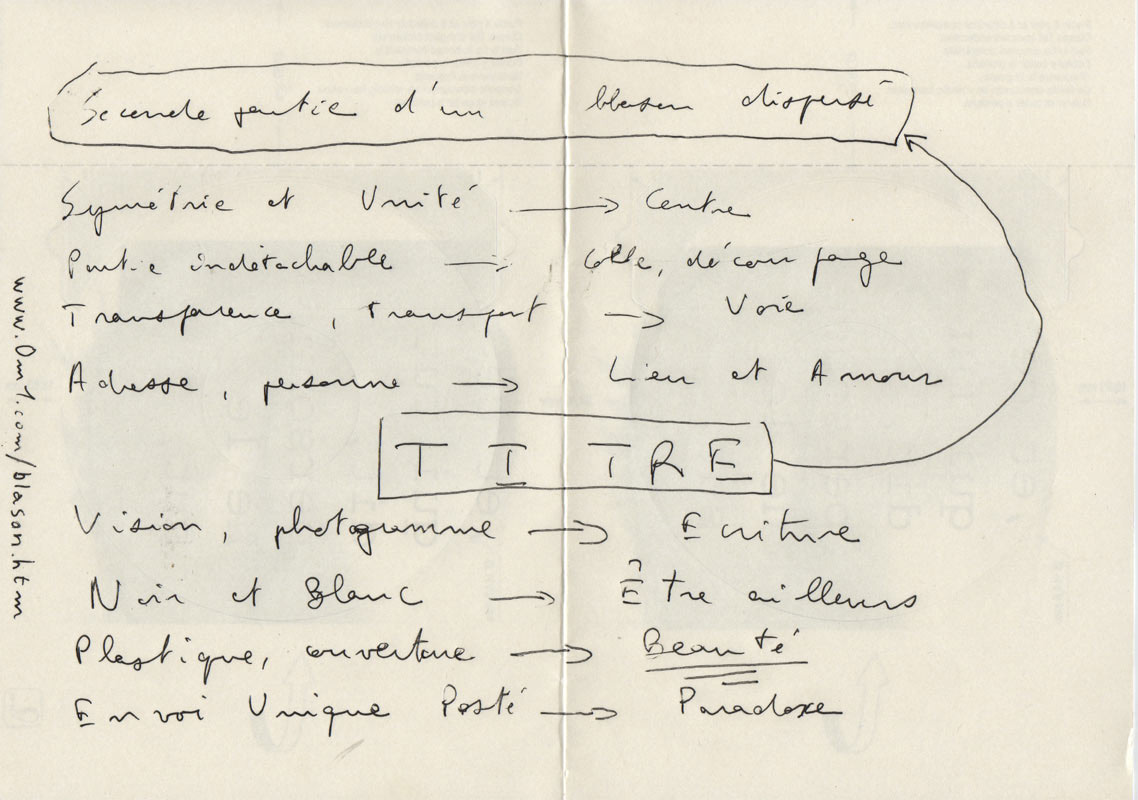 Seconde partie d'un blason dispersé
Symétrie et Unité → Centre
Partie indétachable → Colle, découpage
Transparence, transport → Voie
Adresse, personne → Lieu et Amour
TITRE
Vision, photogramme → Ecriture
Noir et Blanc → Être ailleurs
Plastique, ouverture → Beauté
Envoi Unique Posté → Paradoxe
www.0m1.com/blason.htm